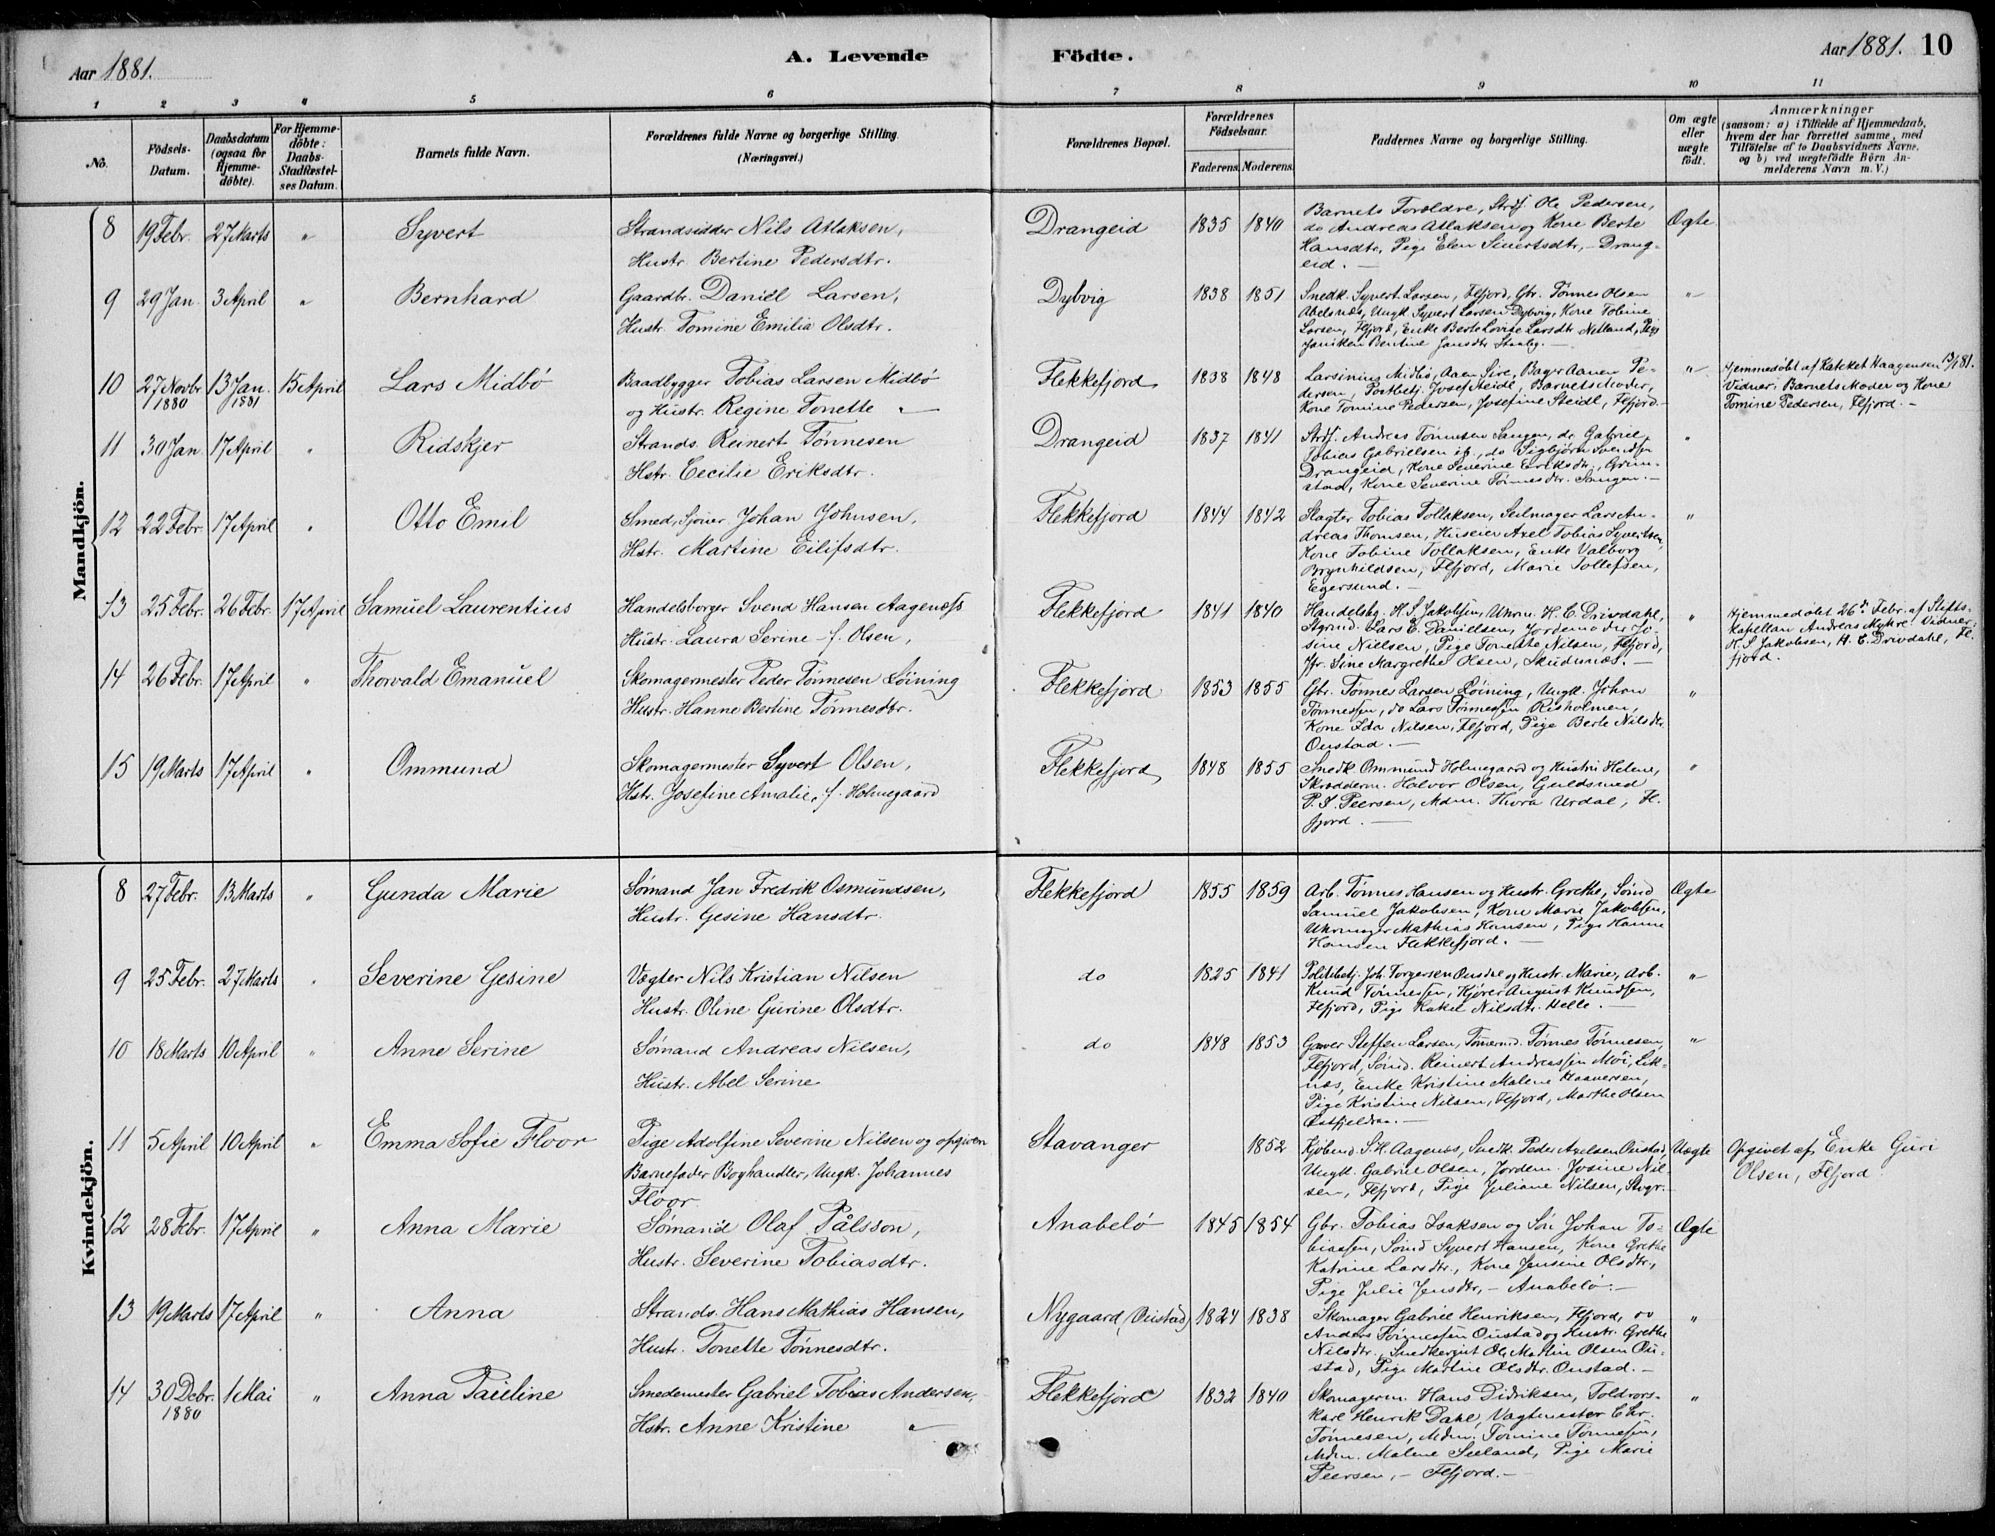 Aar 1881.
A. Levende Födte.
Aar 1881. 10
1 2 3 4 5 6 7 8 9 10 11
No.
Födsels-Datum.
Daabsdatum (ogsaa for Hjemme-döbte).
For Hjemme-döbte: Daabs-Stadfæstel-ses Datum.
Barnets fulde Navn.
Forældrenes fulde Navne og borgerlige Stilling. (Næringsvei.)
Forældrenes Bopæl.
Forældrenes Födselsaar.
Faderens. Moderens.
Faddernes Navne og borgerlige Stilling.
Om ægte eller uægte födt.
Anmærkninger
(saasom: a) i Tilfælde af Hjemmedaab,
hvem der har forrettet samme, med
Tilföielse af to Daabsvidners Navne,
og b) ved uægtefödte Börn An-
melderens Navn m. V.)
Mandkjön.
8 19 Febr. 27 Marts " Syvert
Strandsidder Nils Atlaksen,
Hustr. Bertine Pedersdtr.
Drangeid 1835 1840
Barnets Forældre, Strdf. Ole Pedersen,
do Andreas Atlaksen og Kone Berte
Hansdtr., Pige Elen Sivertsdtr., - Drang-
eid. —
Ægte
9 29 Jan. 3 April " Bernhard
Gaardbr. Daniel Larsen,
Hustr. Tomine Emilia Olsdtr.
Dybvig 1838 1851
Snedk. Syvert Larsen, Flfjord, Gbr. Tönnes Olsen
Abelsnæs, Ungk. Syvert Larsen Dybvig, Kone Tobine
Larsen, Flfjord, Enke Berte Lovise Larsdtr. Netland, Pige
Bentine Jansdtr.
"
10 27 Novbr. 1880 13 Jan. 1881 15 April Lars Midbö
Baadbygger Tobias Larsen Midbö
og Hustr. Regine Tonette "
Flekkefjord 1838 1848
Larsinius Midbö, Aaen Sire, Bager Aanen Pe-
dersen, Postbetj. Josef Meidl, Barnets Moder,
Kone Tomine Pedersen, Josefine Steidl, Flfjord. —
"
Hjemmedöbt af Kateket Haagensen 13/1 81.
Vidner: Barnets Moder og Kone
Tomine Pedersen, Flfjord. —
11 30 Jan 17 April " Ridskjer
Strands. Reinert Tönnesen
Hstr. Cecilie Eriksdtr.
Drangeid 1837 1841
Strdf. Andreas Tönnesen Sangen, do Gabriel
Tobias Gabrielsen ib., do Sigbjörn Svendsen
Drangeid, Kone Severine Eriksdtr., Grim-
stad, Kone Severine Tönnesdtr. Sangen. —
"
12 22 Febr. 17 April " Otto Emil
Smed, Sjöuer Johan Johnsen,
Hstr. Martine Eilifsdtr.
Flekkefjord 1844 1842
Slagter Tobias Tollaksen, Seilmager Lars An-
dreas Thomsen, Huseier Axel Tobias Syvertsen,
Kone Tobine Tollaksen, Enke Valborg
Brynhildsen, Flfjord, Marie Tollefsen,
Egersund. —
"
13 25 Febr. 26 Febr. 17 April Samuel Laurentius
Handelsborger Svend Hansen Aagenæss
Hustr. Laura Serine f. Olsen,
Flekkefjord 1841 1840
Handelsbg. H. S. Jakobsen, Uhrm. H. C. Drivdahl,
Styrmd. Lars E. Danielsen, Jordemoder Jo-
sine Nielsen, Pige Tonette Nilsen, Flfjord,
Jfr. Sine Margrethe Olsen, Skudesnæs. —
"
Hjemmedöbt 26de Febr. af Stifts-
kapellan Andreas Myhre. Vidner:
H. S. Jakobsen, H. C. Drivdahl, Fl.
fjord.
14 26 Febr. 17 April " Thorvald Emanuel
Skomagermester Peder Tönnesen Löining
Hustr. Hanne Bertine Tönnesdtr.
Flekkefjord 1853 1855
Gbr. Tönnes Larsen Löining, Ungk. Johan
Tönnessen, do Lars Tönnessen Risholmen,
Kone Ida Nilsen, Flfjord, Pige Berte Nilsdtr.
Oustad. —
"
15 19 Marts 17 April " Ommund
Skomagermester Syvert Olsen,
Hstr. Josefine Amalie, f. Holmegaard
Flekkefjord 1848 1855
Snedk. Ommund Holmegaard og Hustru Helene,
Skrædderm. Halvor Olsen, Guldsmed
P. S. Peersen, Mdm. Thora Urdal, Fl.
fjord. —
"
Kvindekjön.
8 27 Febr. 13 Marts " Gunda Marie
Sömand Jan Fredrik Osmundsen,
Hustr. Gesine Hansdtr.
Flekkefjord 1855 1859
Arb. Tönnes Hansen og Hustr. Grethe, Sömd.
Samuel Jakobsen, Kone Marie Jakobsen,
Uhrmager Mathias Hansen, Pige Hanne
Hansen Flekkefjord. —
Ægte
9 25 Febr. 27 Marts " Severine Gesine
Vægter Nils Kristian Nilsen
Hustr. Oline Gurine Olsdtr.
do 1825 1841
Politibetj. Joh. Torgersen og Hustr. Marie, Arb.
Knud Tönnessen, Kjörer August Knudsen,
Flfjord, Pige Rakel Nilsdtr. Helle. —
"
10 18 Marts 10 April " Anne Serine
Sömand Andreas Nilsen,
Hustr. Abel Serine
do 1848 1853
Garver Steffen Larsen, Tömmermd. Tönnes Tönnesen,
Flfjord, Sömd. Reinert Andreassen Möi, Lik-
næs, Enke Kristine Malene Haaversen,
Pige Kristine Nilsen, Flfjord, Marthe Olsen
"
11 5 April 10 April " Emma Sofie Floor
Pige Adolfine Severine Nilsen og opgiven
Barnefader Boghandler, Ungk. Johannes
Floor
Stavanger 1852
Kjöbmd. S. H. Aagenæs, Snedk. Peder Axelsen Oustad,
Ungk. Gabriel Olsen, Jordem. Josine Nil-
sen, Flfjord, Pige Juliane Nilsen, Stvgr. —
Uægte
Opgivet af Enke Guri
Olsen, Flfjord
12 28 Febr. 17 April " Anna Marie
Sömand Olaf Pålsson,
Hustr. Severine Tobiasdtr.
Anabelö 1845 1854
Gbr. Tobias Isaksen og Sön Johan To-
biassen, Sömd Syvert Hansen, Kone Grethe
Katrine Larsdtr., Kone Jensine Olsdtr.,
Pige Julie Jensdtr., - Anabelö. —
Ægte
13 19 Marts 17 April " Anna
Strands. Hans Mathias Hansen,
Hustr. Tonette Tönnesdtr.
Nygaard, (Oustad) 1824 1838
Skomager Gabriel Henriksen, Flfjord,
Anders Tönnessen Oustad og Hustr. Grethe
Nilsdtr., Snedkergut Ole Martin Olsen Ou-
stad, Pige Martine Olsdtr. Oustad. —
"
14 30 Debr. 1880 1 Mai " Anna Pauline
Smedemester Gabriel Tobias Andersen,
Hstr. Anne Kristine "
Flekkefjord 1832 1840
Skomagerm. Hans Didriksen, Toldrors-
karl Henrik Dahl, Vagtmester Chr.
Tönnesen, Mdm. Tomine Tönnesen,
Mdm. Malene Seeland, Pige Marie
Peersen, - Flfjord. —
"